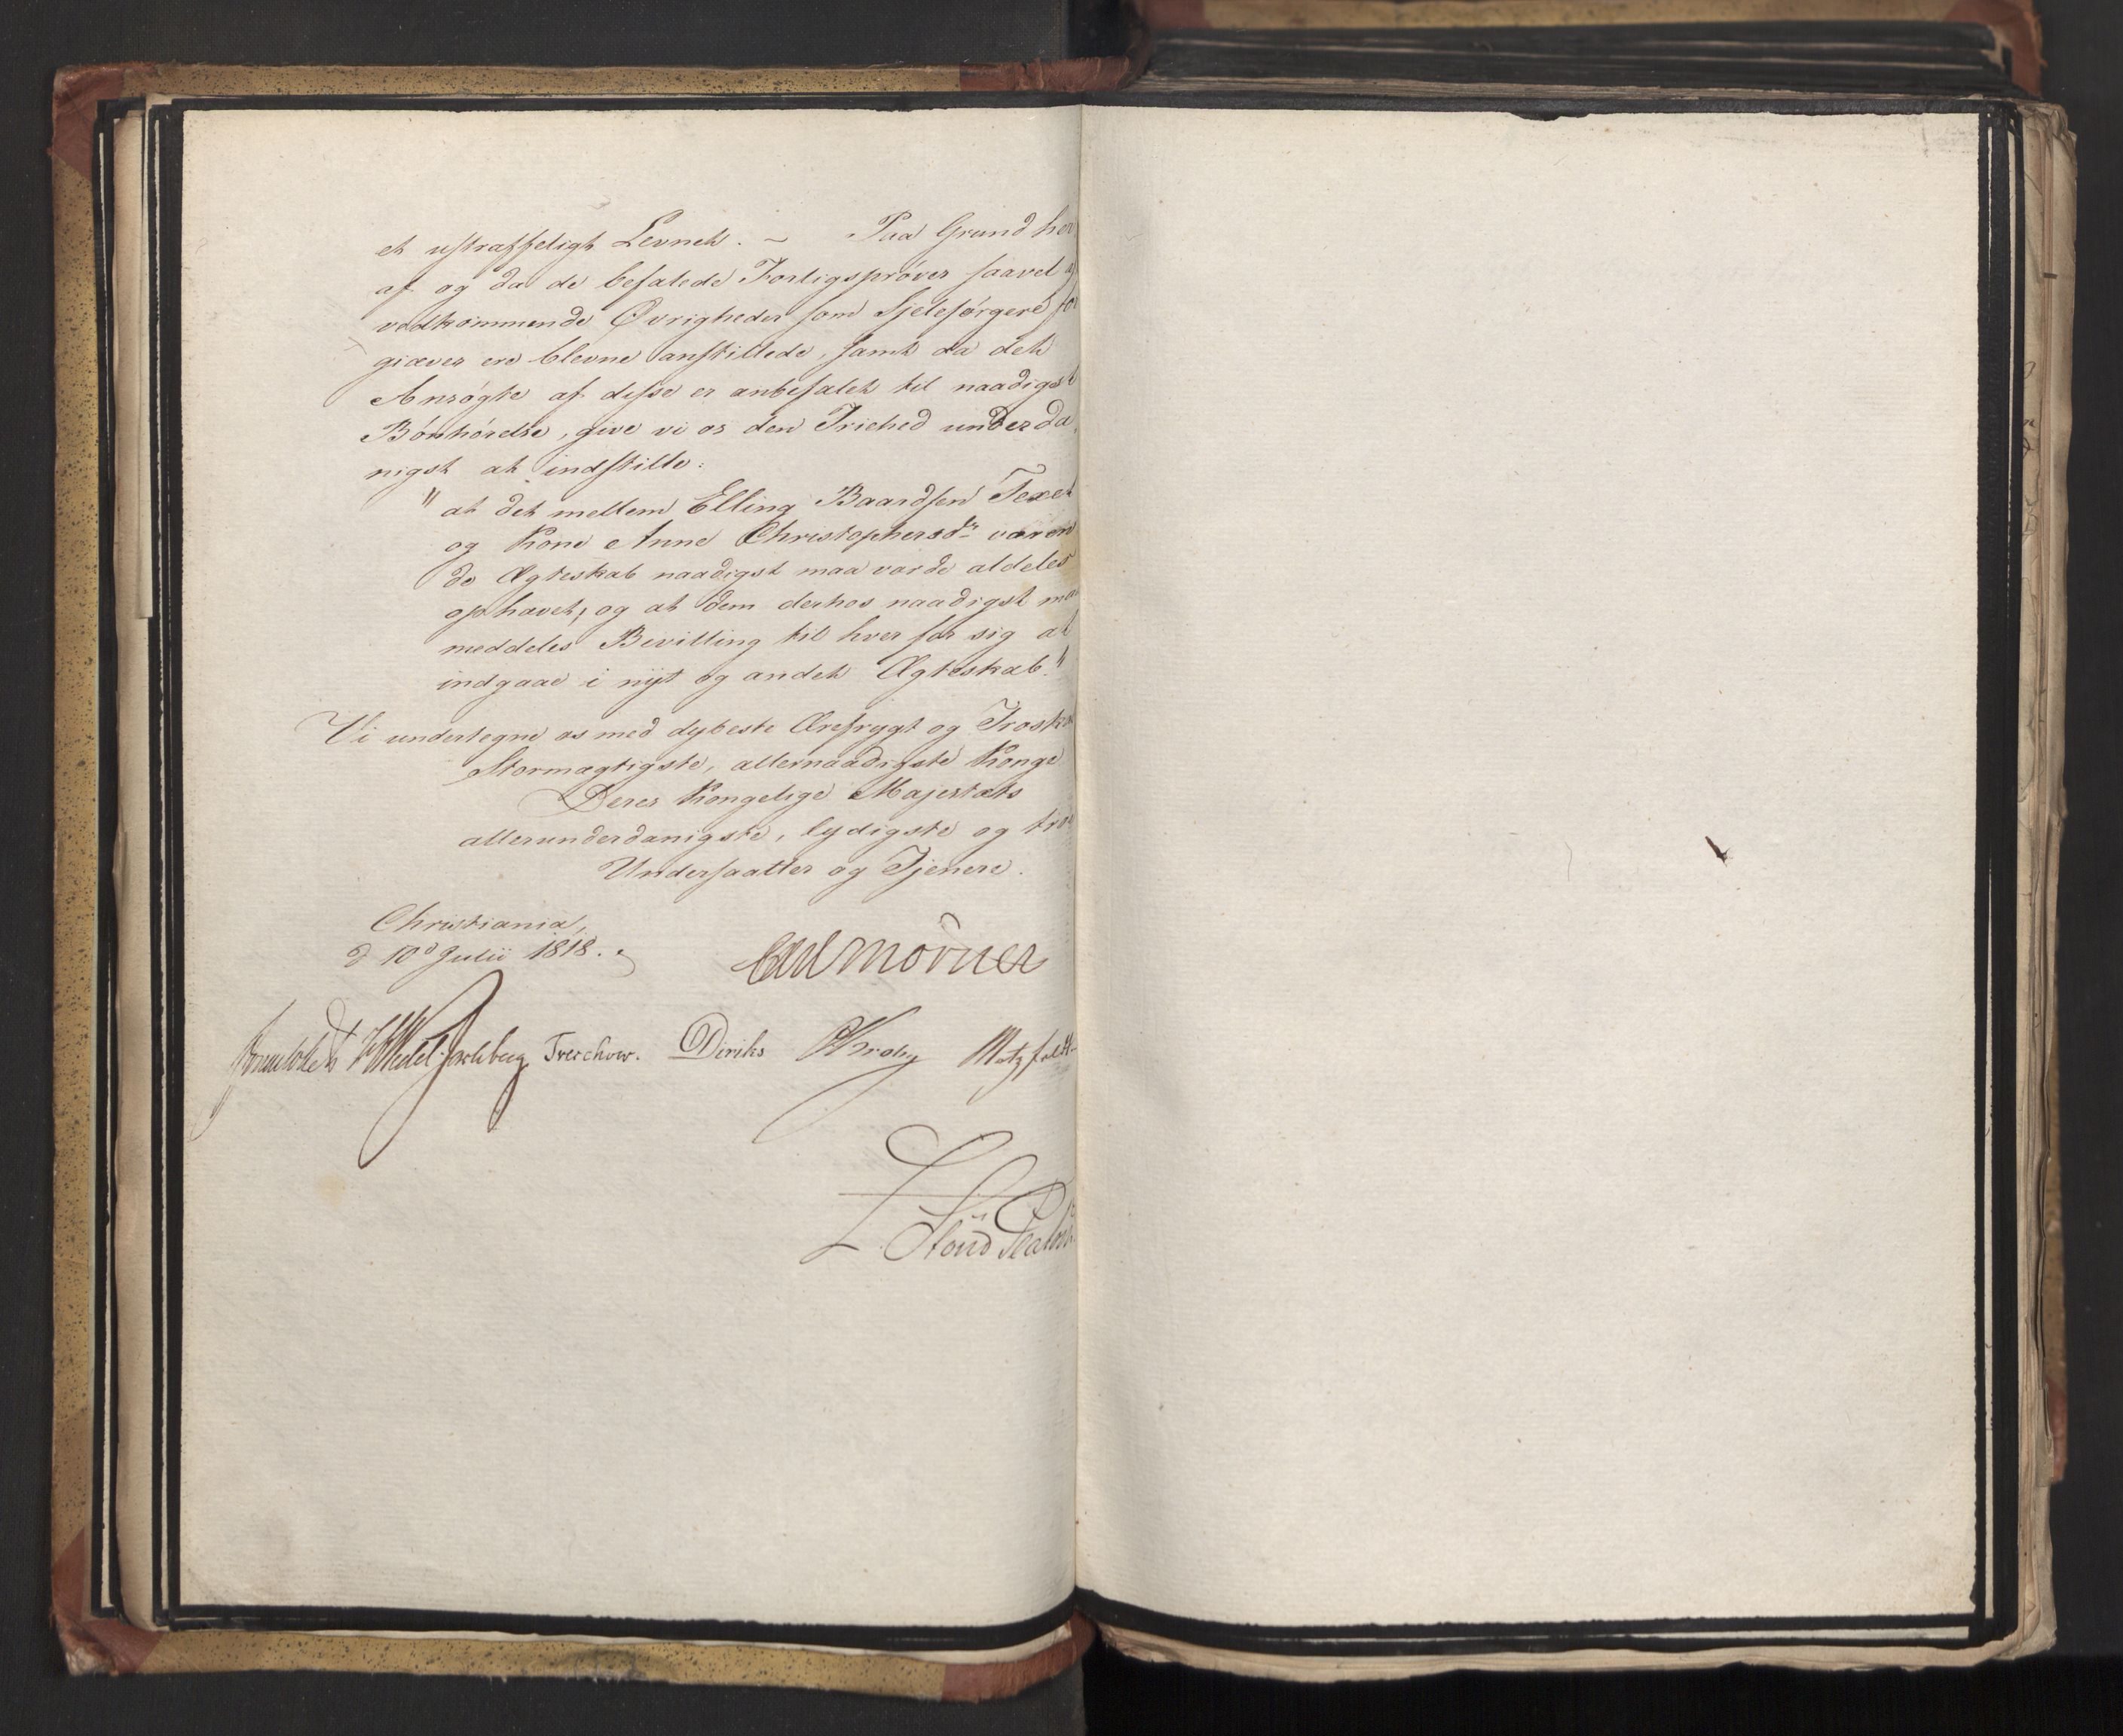 et ustraffeligt Levnet. – Paa Grund her
af og da de befalede Forligsprøver saavel af
vedkommende Øvrigheder som Sjelesørgere for
giæves ere blevne anstillede, samt da det
Ansøgte af disse er anbefalet til naadigst
Bønhørelse, give vi os den Friehed underda
nigst at indstille:
"at det mellem Elling Baardsen Texet
og Kone Anne Christophersdr væren
de Ægteskab naadigst maa vorde aldeles
ophævet, og at dem derhos naadigst maa
meddeles Bevilling til hver for sig at
indgaae i nyt og andet Ægteskab."
Vi undertegne os med dybeste Ærefrygt og Troska
Stormægtigste, allernaadigste Konge
Deres Kongelige Majestæts
allerunderdanigste, lydigste og tro
Undersaatter og Tjenere.
Christiania,
d 10d Julii 1818.
Carl Mörner
Sommerhielm HWedel Jarlsberg Treschow. Diriks Krohg Motzfeldt